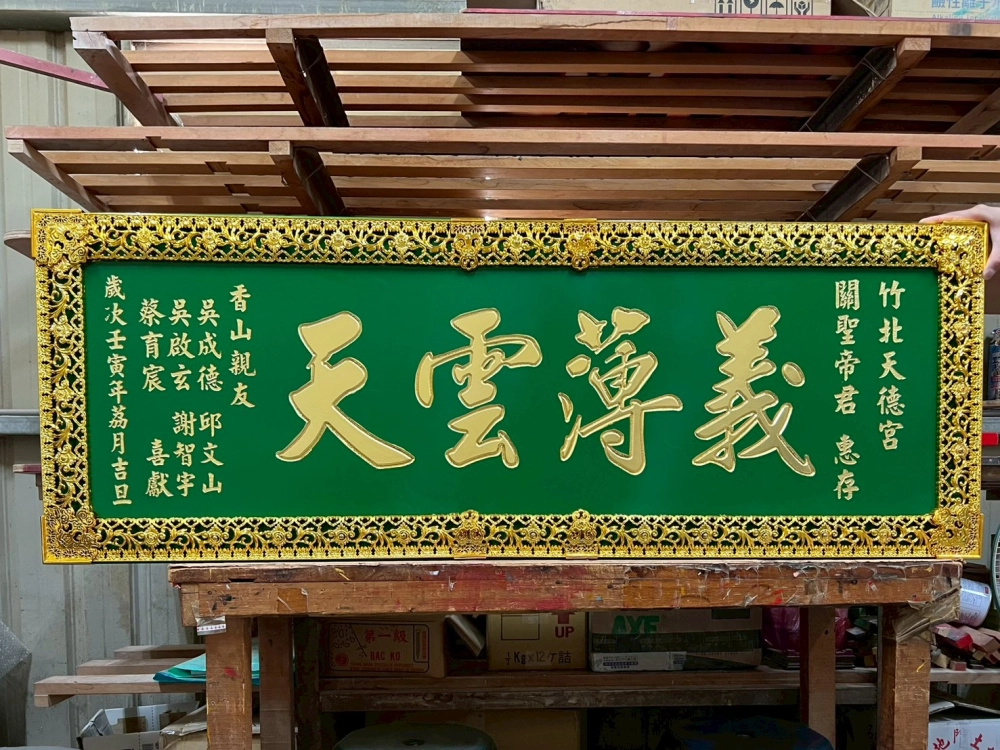 竹北天德宮
關聖帝君 惠存
義薄雲天
香山親友
吳成德 邱文山
吳啟玄 謝智宇
蔡育宸 喜獻
歲次壬寅年荔月吉旦
第一級
BAC KO
UP
½Kg×12/T詰
AYE